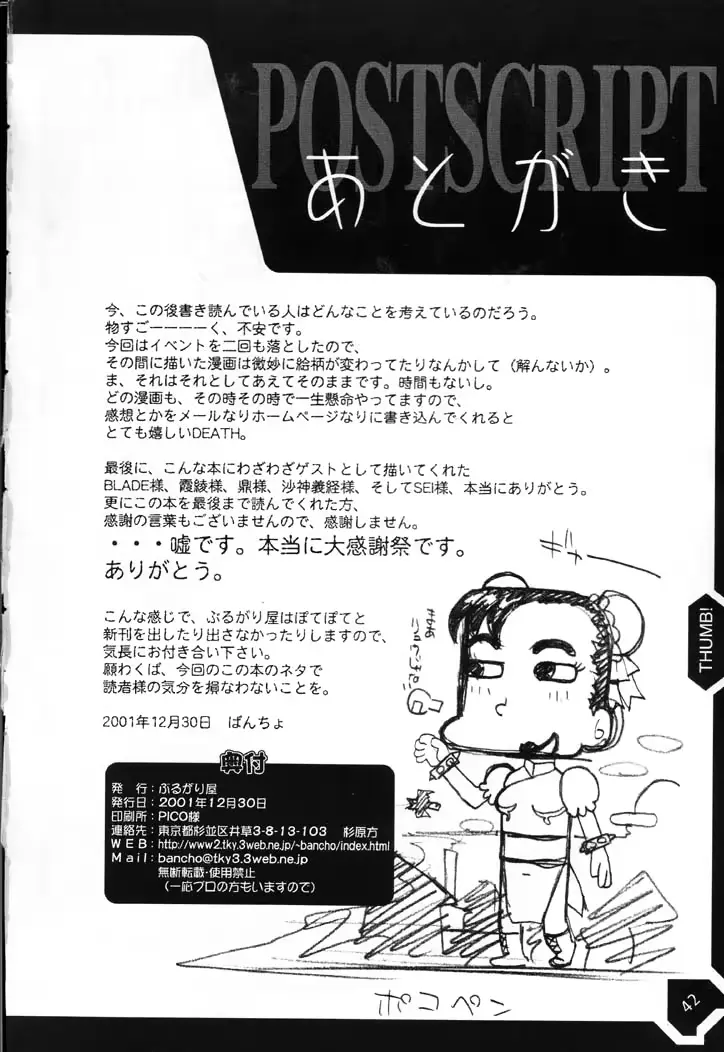 POSTSCRIPT
あとがき
今、この後書き読んでいる人はどんなことを考えているのだろう。
物すごーーーーく、不安です。
今回はイベントを二回も落としたので、
その間に描いた漫画は微妙に絵柄が変わってたりなんかして（解んないか）。
ま、それはそれとしてあえてそのままです。時間もないし。
どの漫画も、その時その時で一生懸命やってますので、
感想とかをメールなりホームページなりに書き込んでくれると
とても嬉しいDEATH。
最後に、こんな本にわざわざゲストとして描いてくれた
BLADE様、霞綾様、鼎様、沙神義経様、そしてSEI様、本当にありがとう。
更にこの本を最後まで読んでくれた方、
感謝の言葉もございませんので、感謝しません。
・・・嘘です。本当に大感謝祭です。
ありがとう。
こんな感じで、ぶるがり屋はぼてぼてと
新刊を出したり出さなかったりしますので、
気長にお付き合い下さい。
願わくば、今回のこの本のネタで
読者様の気分を損なわないことを。
2001年12月30日　ばんちょ
奥付
発　行：ぶるがり屋
発行日：2001年12月30日
印刷所：PICO様
連絡先：東京都杉並区井草3-8-13-103　杉原方
WEB：http://www2.tky.3web.ne.jp/~bancho/index.html
Mail：bancho@tky3.3web.ne.jp
無断転載・使用禁止
（一応プロの方もいますので）
ギャー
THUMB!
ポコペン
42